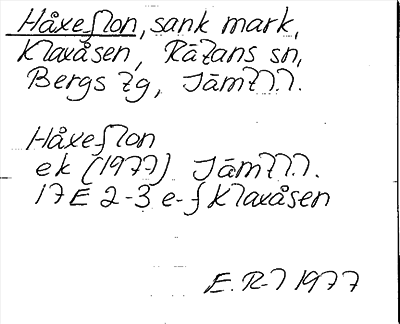 Håxeflon, sank mark,
Klaxåsen, Rätans sn,
Bergs tg, Jämtl.l.
Håxeflon
ek (1977) Jämtl.l.
17E 2-3 e-f Klaxåsen
E.R-l 1977